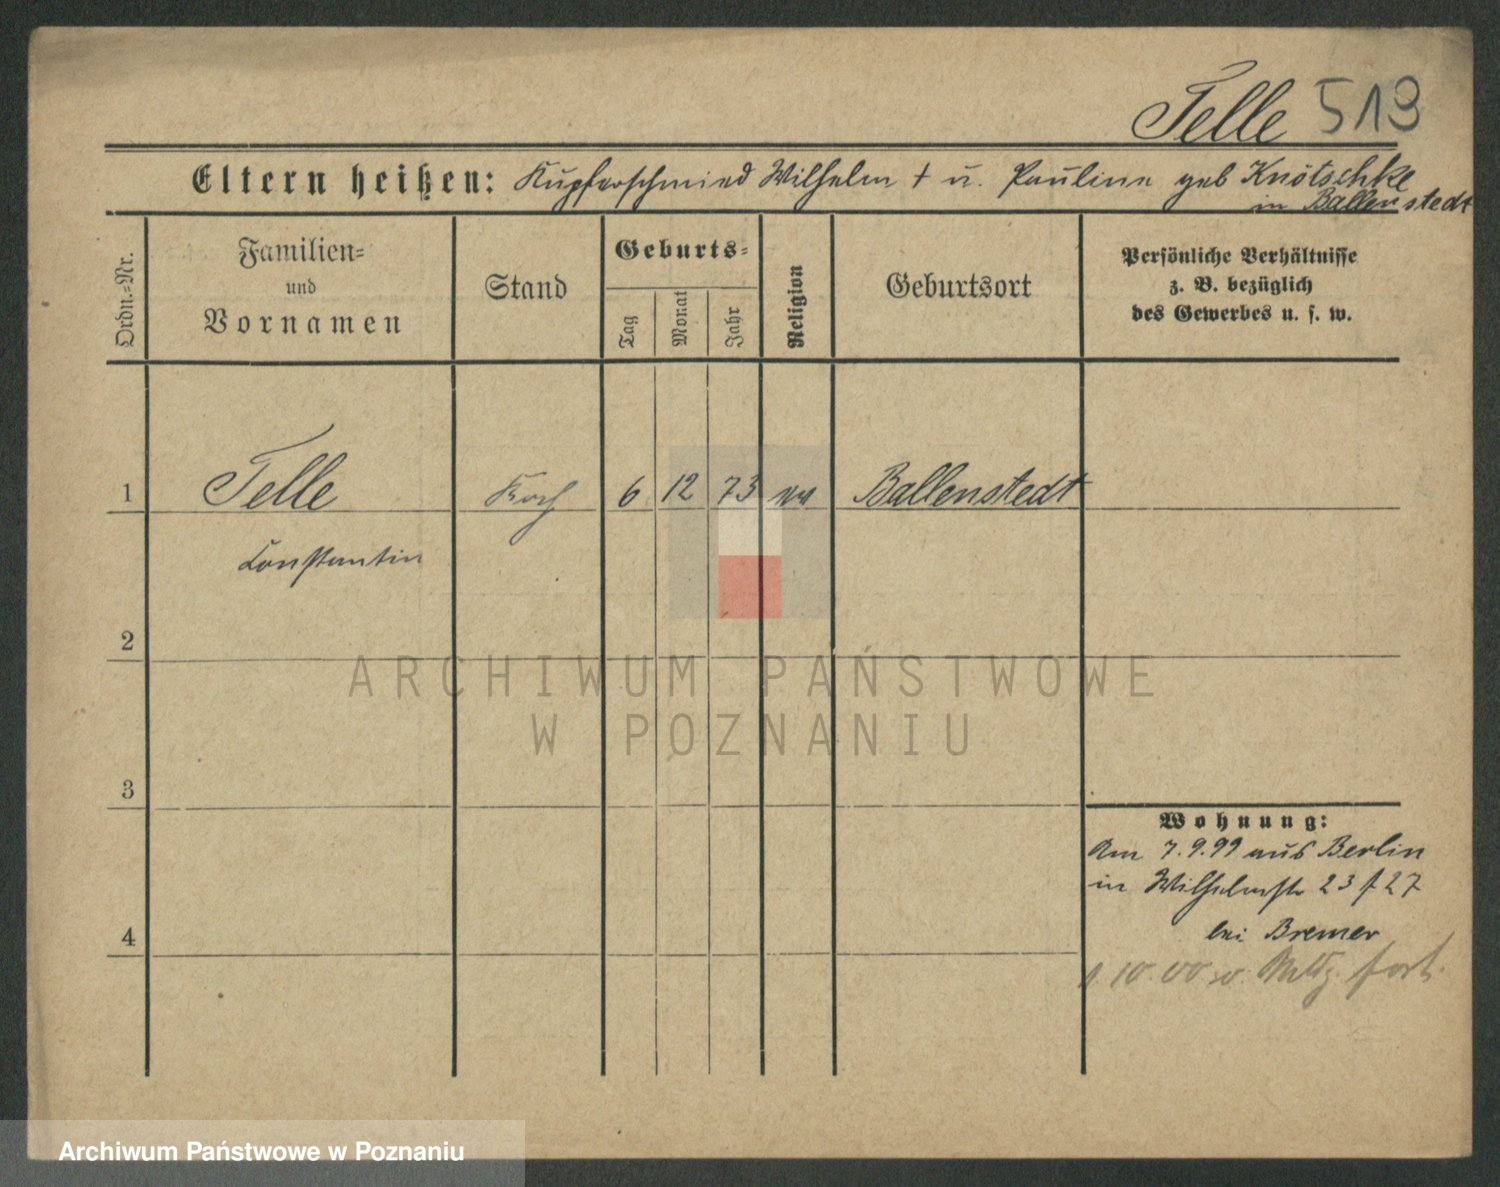 Telle 519
Eltern heißen: Kupferschmied Wilhelm † u. Pauline geb Knötschke
in Ballenstedt
Ordn.-Nr.
Familien-
und
Vornamen
Stand
Geburts-
Tag
Monat
Jahr
Religion
Geburtsort
Persönliche Verhältnisse
z. B. bezüglich
des Gewerbes u. s. w.
1 Telle Koch 6 12 73 ev Ballenstedt
Constantin
2
3
4
Wohnung:
Am 7.9.99 aus Berlin
in Wilhelmstr 23 f 27
bei Bremer
1.10.00 fort.
ARCHIWUM PAŃSTWOWE
W POZNANIU
Archiwum Państwowe w Poznaniu